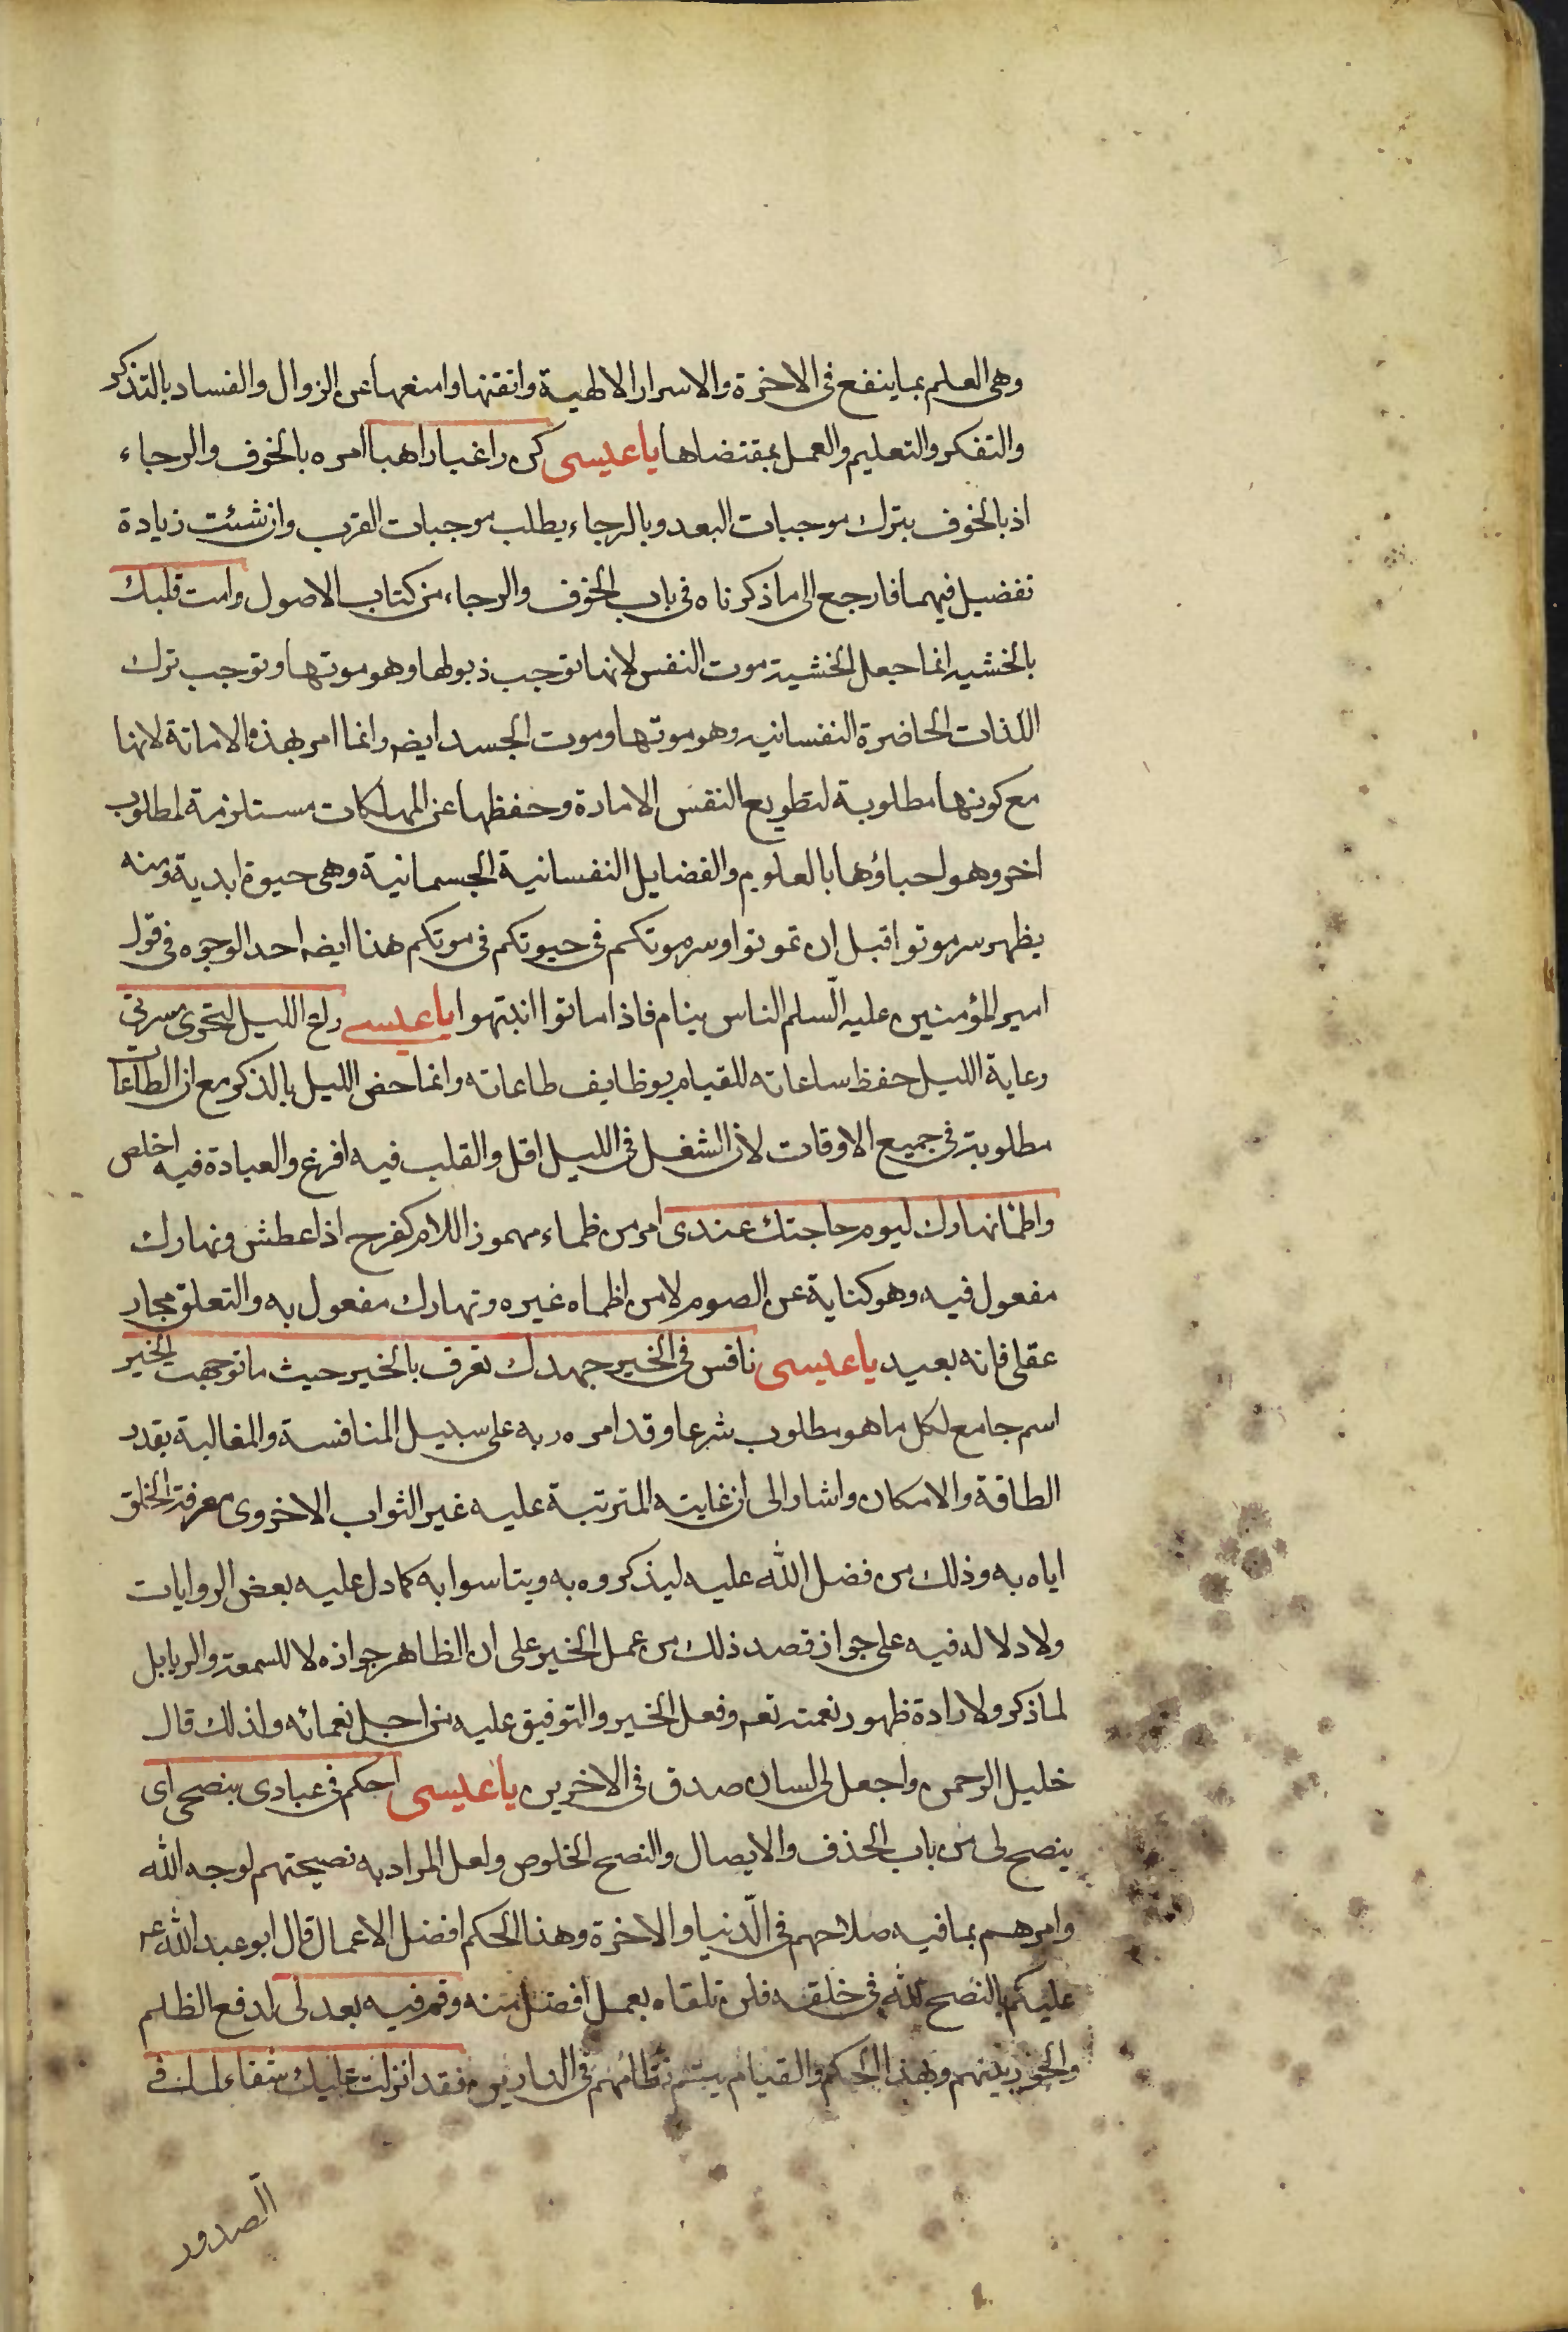 وهى العلم بما ينفع فى الاخرة والاسرار الالهية واتقنها وامنعها عن الزوال والفساد بالتذكر
والتفكر والتعليم والعمل بمقتضاها يا عيسى كن راغبا راهبا امره بالخوف والرجاء
اذ بالخوف يترك موجبات البعد وبالرجاء يطلب موجبات القرب وان شئت زيادة
تفضيل فيهما فارجع الى ما ذكرناه فى باب الخوف والرجاء من كتاب الاصول وامت قلبك
بالخشيه انما جعل الخشية موت النفس لانها توجب ذبولها وهو موتها وتوجب ترك
اللذات الحاضرة النفسانيه وهو موتها وموت الجسد ايضه وانما امر بهذه الاماتة لانها
مع كونها مطلوبة لتطويع النفس الامارة وحفظها عن المهلكات مستلزمة لمطلوب
اخر وهو احياؤها بالعلوم والفضايل النفسانية الجسمانية وهى حيوة ابدية ومنه
يظهر سر موتوا قبل ان تموتوا وسر موتكم فى حيوتكم فى موتكم هنا ايضه احد الوجوه فى قول
امير المؤمنين عليه السّلم الناس ينام فاذا ماتوا انتبهوا يا عيسى راع الليل لتحرى مسرتى
رعاية الليل حفظ ساعاته للقيام بوظايف طاعاته وانما خص الليل بالذكر مع ان الطاعات
مطلوبة فى جميع الاوقات لان الشغل فى الليل اقل والقلب فيه افرغ والعبادة فيه اخلص
واظمأ نهارك ليوم حاجتك عندى امر من ظماء مهموز اللام كفرح اذا عطش ونهارك
مفعول فيه وهو كناية عن الصوم لا من اظماه غيره ونهارك مفعول به والتعلق مجاز
عقلى فانه بعيد يا عيسى نافس فى الخير جهدك تعرف بالخير حيث ما توجهت الخير
اسم جامع لكل ما هو مطلوب شرعا وقد امره ربه على سبيل المنافسة والمغالبة بقدر
الطاقة والامكان واشار الى ان غايته المترتبة عليه غير الثواب الاخروى معرفة الخلق
اياه به وذلك من فضل الله عليه ليذكروه به ويتاسوا به كما دل عليه بعض الروايات
ولا دلالة فيه على جواز قصد ذلك من عمل الخير على ان الظاهر جوازه لا للسمعة والريا بل
لما ذكر ولارادة ظهور نعمته تعم وفعل الخير والتوفيق عليه من اجل نعمائه ولذلك قال
خليل الرحمن واجعل لى لسان صدق فى الاخرين يا عيسى احكم فى عبادى بنصحى اى
بنصح لى من باب الحذف والايصال والنصح الخلوص ولعل المراد به نصيحتهم لوجه الله
وامرهم بما فيه صلاحهم فى الدّنيا والاخرة وهذا الحكم افضل الاعمال قال ابو عبد الله ع
عليكم بالنصح لله فى خلقه فلن تلقاه بعمل افضل منه وقم فيه بعدلى لدفع الظلم
والجور بينهم وبهذا الحكم والقيام يتم نظامهم فى الدارين فقد انزلت عليك شفاء لما فى
الصدور